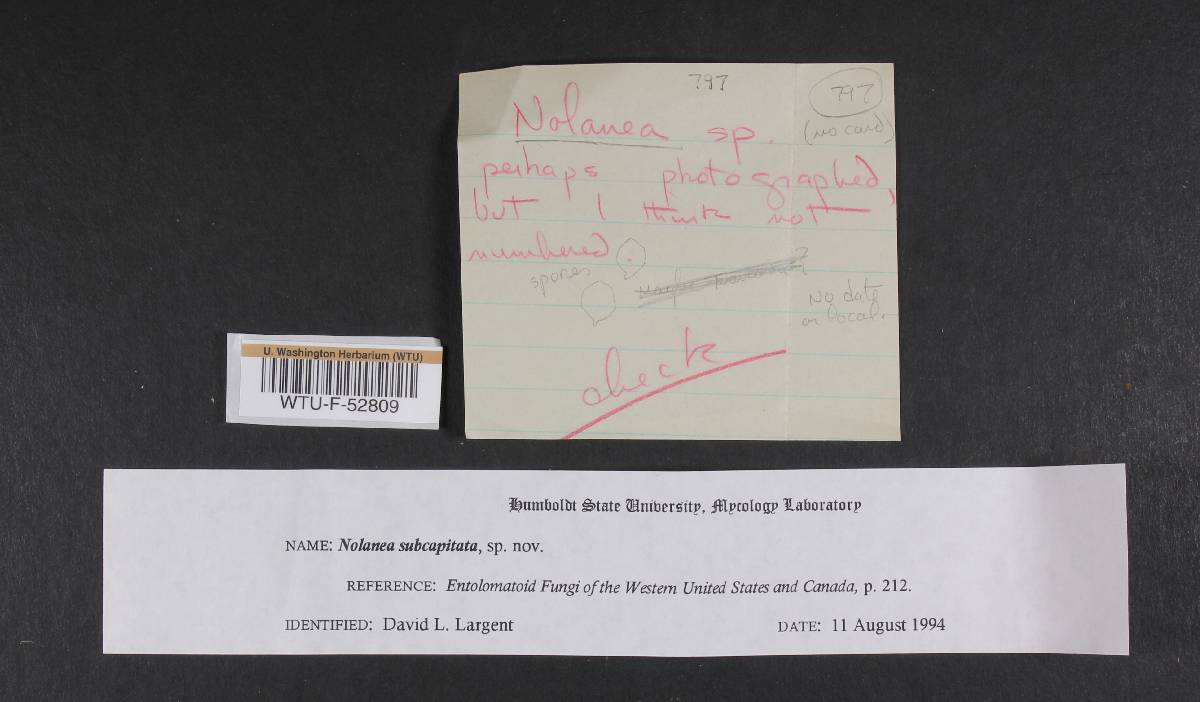 797
797
(no card)
Nolanea sp.
perhaps photographed,
but I think not
numbered.
spores
No date
or local.
check
U. Washington Herbarium (WTU)
WTU-F-52809
Humboldt State University, Mycology Laboratory
NAME: Nolanea subcapitata, sp. nov.
REFERENCE: Entolomatoid Fungi of the Western United States and Canada, p. 212.
IDENTIFIED: David L. Largent
DATE: 11 August 1994